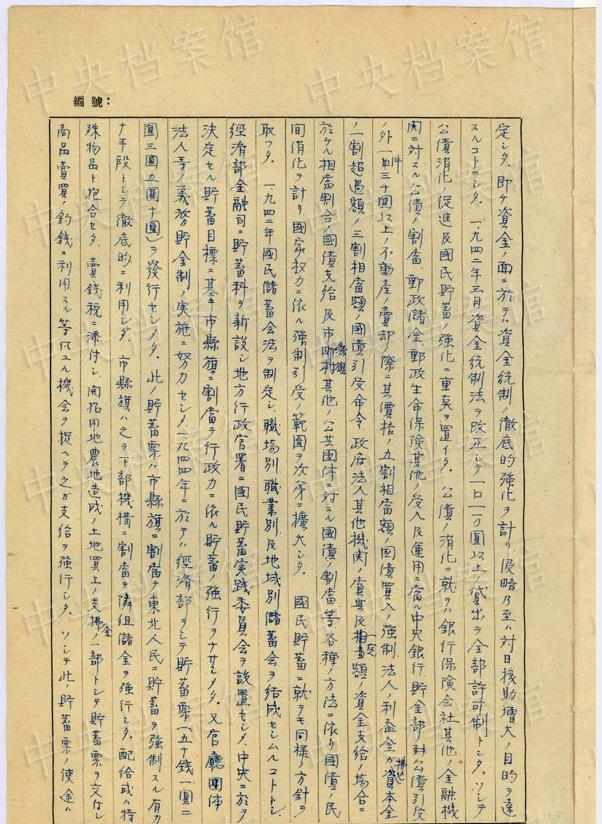 中央档案馆
編號：
定シタ。即チ資金ノ面ニ於テハ資金統制ノ徹底的強化ヲ計リ侵略乃至ハ対日援助増大ノ目的ヲ達
スルコトニシタ。一九四二年三月資金統制法ヲ改正シテ一口一万圓以上ノ貸出ヲ全部許可制トシタ。ソシテ
公債消化ノ促進及国民貯蓄ノ強化ニ重点ヲ置イタ。公債ノ消化ニ就テハ銀行保険会社其他ノ金融機
関ニ対スル公債ノ割當、郵政儲金、郵政生命保険其他ノ受入及運用ニ當ル中央銀行ノ貯全部対公債引受
ノ外一件三十圓以上ノ不動産ノ賣却ノ際ニ其價格ノ五割相當額ノ国債買入ノ強制、法人ノ利益金ガ拂込資本金
ノ一割超過額ノ三割相當額ノ国債引受命令、政府法人其他機関ノ賞与及一定額ノ資金支給ノ場合ニ
於ケル相當割合ノ国債支給及市縣旗町村其他ノ公共団体ニ対スル国債ノ割當等各種ノ方法ニ依リ国債ノ民
間消化ヲ計リ国家权力ニ依ル強制引受ノ範圍ヲ次第ニ擴大シタ。国民貯蓄ニ就テモ同様ノ方針ヲ
取ッタ。一九四二年国民儲蓄会法ヲ制定シ、職場別、職業別及地域別儲蓄会ヲ結成セシムルコトトシ、
經済部金融司ニ貯蓄科ヲ新設シ地方行政官署ニ国民貯蓄実践委員会ヲ設置セシメ、中央ニ於テ
決定セル貯蓄目標ニ基キ市縣旗ニ割當テ行政力ニ依ル貯蓄ノ強行ヲナサシメタ。又官廳団体
法人等ノ義務貯金制ノ実施ニ努力セシメ一九四四年ニ於テハ經済部ヲシテ貯蓄票（五十錢一圓二
圓三圓五圓十圓）ヲ發行セシメタ。此ノ貯蓄票ハ市縣旗ニ割當テ東北人民ニ貯蓄ヲ強制スル有力
ナ手段トシテ徹底的ニ利用シタ。市縣旗ハ之ヲ下部機構ニ割當テ隣組儲金ヲ強行シタ。配給或ハ特
殊物品ト抱合セタ、賣錢税ニ添付シ、開拓用地農地造成ノ土地買上ノ支拂金ノ一部トシテ貯蓄票ヲ交付シ
商品賣買ノ釣錢ニ利用スル等凡ユル機会ヲ捉ヘテ之ガ支給ヲ強行シタ。ソシテ此ノ貯蓄票ノ使途ハ